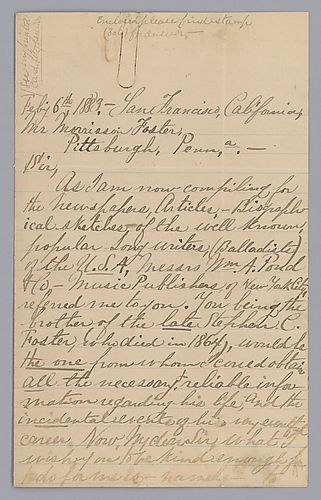 Enclosed please find stamp
for answer.
Feby 6th 1883.- San Francisco, California,
Mr Morrison Foster,
Pittsburgh, Penna. -
Sir,
As I am now compiling for
the newspapers, Articles, - Biograph-
ical sketches, of the well known,
popular Song writers, (Balladists)
of the U.S.A, Messrs Wm. A. Pond
& Co, - Music Publishers of New York City
referred me to you. You being the
brother of the late Stephen C.
Foster, who died in 1864, would be
the one from whom I could obtain
all the necessary, reliable infor
mation regarding his life, and the
incidental events of his very eventful
career. Now, My dear Sir, What I
wish you to be kind enough
to do for me is namely -